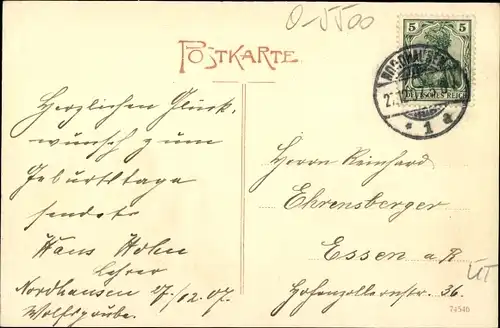 0-5500
POSTKARTE
5
DEUTSCHES REICH
NORDHAUSEN
1 a
Herzlichen Glück-
wunsch zum
Geburtstage
sendet
Hans Hohn
Lehrer
Nordhausen 27./12.07.
Wolfsgrube.
Herrn Reinhard
Ehrensberger
Essen a. R
Hohenzollernstr. 36.
74540